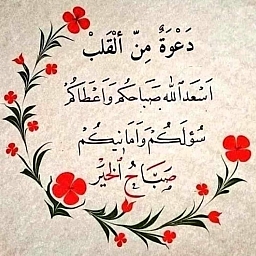 دَعْوَةٌ مِنّ ألْقَلبْ
اَسْعَدَاللّٰه صَبَاحكُم وَاَعْطَاكُم
سُؤلَكُمْ وَاَمَانِيكُمْ
صَبَاحُ اَلخَيرْ